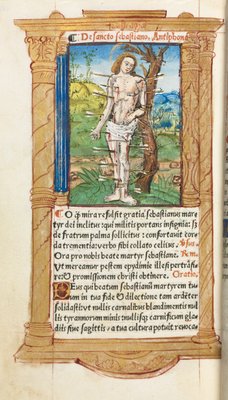 De sancto sebastiano. Antiphona
O q̄ mira refulsit gratia. sebastianus mar-
tyr dei inclitus: qui militis portans insignia: sʒ
de fratrum palma sollicitus: confortauit cor-
da trementia: verbo sibi collato celitus.
Ora pro nobis beate martyr sebastiane.
Ut mereamur pestem epydimie illesi pertrāsi-
re ⁊ promissionem christi obtinere. Oratio.
Deus qui beatum sebastianū martyrem tu-
um in tua fide ⁊ dilectione tam ardēter
solidasti vt nullis carnalibus blandimentis nul-
lis tyrannorum minis nullisqʒ carnificum gla-
diis siue sagittis a tua cultura potuit reuoca-